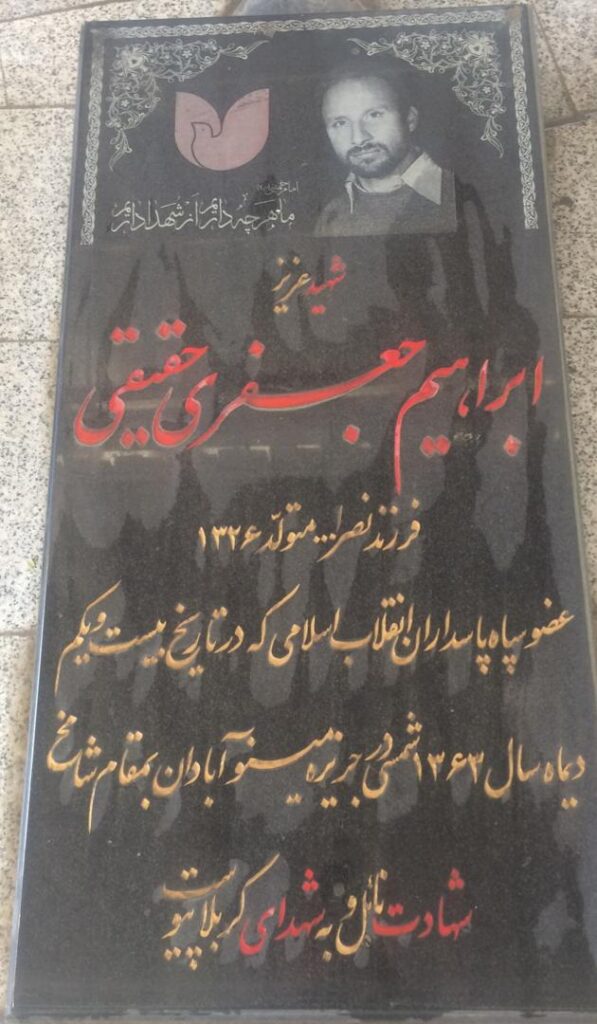 ما هر چه داریم از شهدا داریم
شهید عزیز
ابراهیم جعفری حقیقی
فرزند نصرا... متولد ۱۳۲۶
عضو سپاه پاسداران انقلاب اسلامی که در تاریخ بیست و یکم
دیماه سال ۱۳۶۳ شمسی در جزیره مینو آبادان بمقام شامخ
شهادت نائل و به شهدای کربلا پیوست